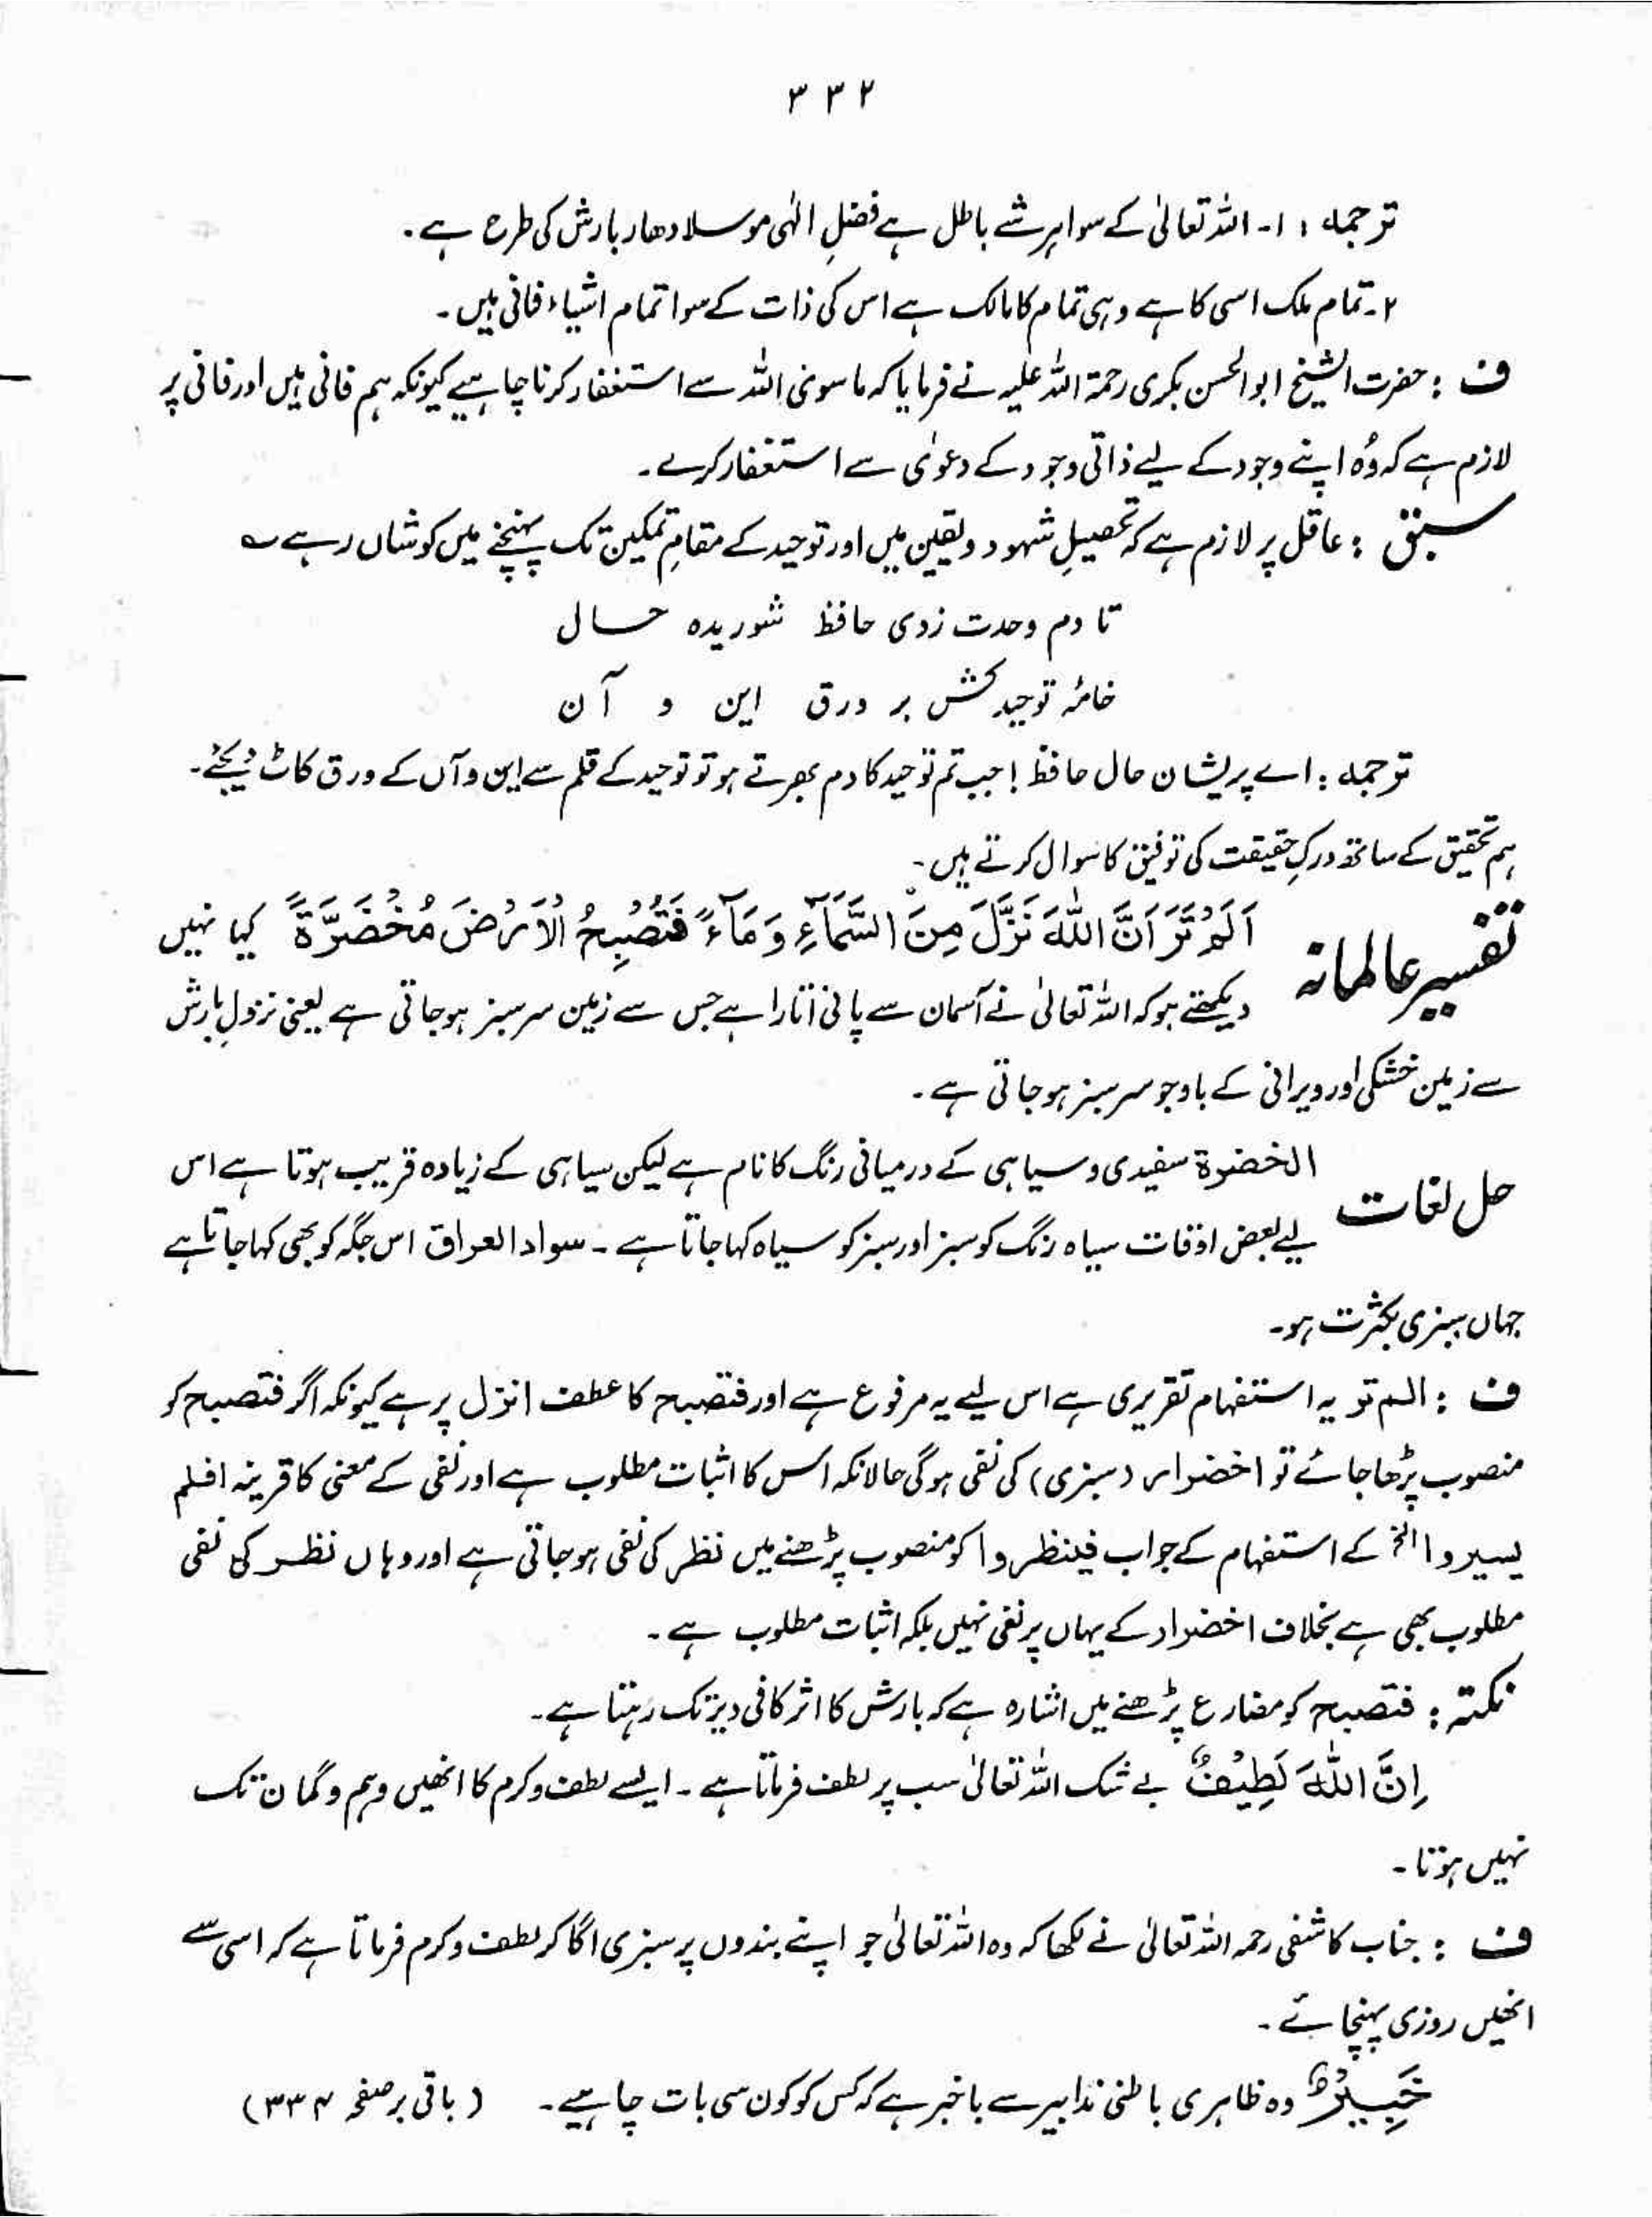 ۳۳۲
ترجمہ : ۱۔ اللہ تعالیٰ کے سوا ہر شے باطل ہے فضلِ الٰہی موسلا دھار بارش کی طرح ہے۔
۲۔ تمام ملک اسی کا ہے وہی تمام کا مالک ہے اس کی ذات کے سوا تمام اشیاء فانی ہیں۔
ف : حضرت الشیخ ابوالحسن بکری رحمۃ اللہ علیہ نے فرمایا کہ ماسوی اللہ سے استغفار کرنا چاہیے کیونکہ ہم فانی ہیں اور فانی پر
لازم ہے کہ وُہ اپنے وجود کے لیے ذاتی وجود کے دعوٰی سے استغفار کرے۔
سبق : عاقل پر لازم ہے کہ تحصیلِ شہود و یقین میں اور توحید کے مقامِ تمکین تک پہنچنے میں کوشاں رہے ؎
تا دم وحدت زدی حافظ شوریدہ حال
خامۂ توحید کش بر ورق این و آن
ترجمہ : اے پریشان حال حافظ ! جب تم توحید کا دم بھرتے ہو تو توحید کے قلم سے این و آں کے ورق کاٹ دیجئے۔
ہم تحقیق کے ساتھ درکِ حقیقت کی توفیق کا سوال کرتے ہیں۔
تفسیر عالمانہ اَلَمْ تَرَ اَنَّ اللّٰهَ نَزَّلَ مِنَ السَّمَآءِ وَ مَآءً فَتُصْبِحُ الْاَرْضَ مُخْضَرَّةً کیا نہیں
دیکھتے ہو کہ اللہ تعالیٰ نے آسمان سے پانی اتارا ہے جس سے زمین سرسبز ہو جاتی ہے یعنی نزولِ بارش
سے زمین خشکی اور ویرانی کے باوجو سرسبز ہو جاتی ہے۔
حل لغات الخضرة سفیدی و سیاہی کے درمیانی رنگ کا نام ہے لیکن سیاہی کے زیادہ قریب ہوتا ہے اس
لیے بعض اوقات سیاہ رنگ کو سبز اور سبز کو سیاہ کہا جاتا ہے۔ سواد العراق اس جگہ کو بھی کہا جاتا ہے
جہاں سبزی بکثرت ہو۔
ف : الم تر یہ استفہام تقریری ہے اس لیے یہ مرفوع ہے اور فتصبح کا عطف انزل پر ہے کیونکہ اگر فتصبح کو
منصوب پڑھا جائے تو اخضرار (سبزی) کی نفی ہوگی حالانکہ اس کا اثبات مطلوب ہے اور نفی کے معنی کا قرینہ افلم
یسیروا الخ کے استفہام کے جواب فینظروا کو منصوب پڑھنے میں نظر کی نفی ہو جاتی ہے اور وہاں نظر کی نفی
مطلوب بھی ہے بخلاف اخضرار کے یہاں پر نفی نہیں بلکہ اثبات مطلوب ہے۔
نکتہ : فتصبح کو مضارع پڑھنے میں اشارہ ہے کہ بارش کا اثر کافی دیر تک رہتا ہے۔
اِنَّ اللّٰهَ لَطِیْفٌ بے شک اللہ تعالیٰ سب پر لطف فرماتا ہے۔ ایسے لطف و کرم کا انھیں وہم و گمان تک
نہیں ہوتا۔
ف : جناب کاشفی رحمہ اللہ تعالیٰ نے لکھا کہ وہ اللہ تعالیٰ جو اپنے بندوں پر سبزی اگا کر لطف و کرم فرماتا ہے کہ اسی سے
انھیں روزی پہنچائے۔
خَبِیْرٌ وہ ظاہری باطنی تدابیر سے باخبر ہے کہ کس کو کون سی بات چاہیے۔ (باقی بر صفحہ ۳۳۴)